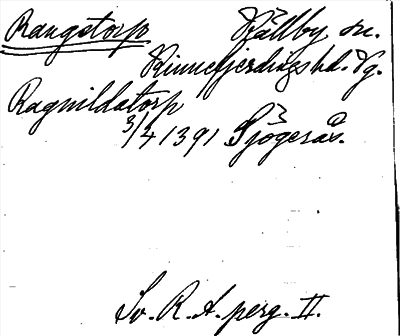 Rangstorp Källby sn.
Kinnefjerdingshd. Vg.
Ragnildatorp
3/4 1391 Sjögerås.
Sv. R. A. perg. II.